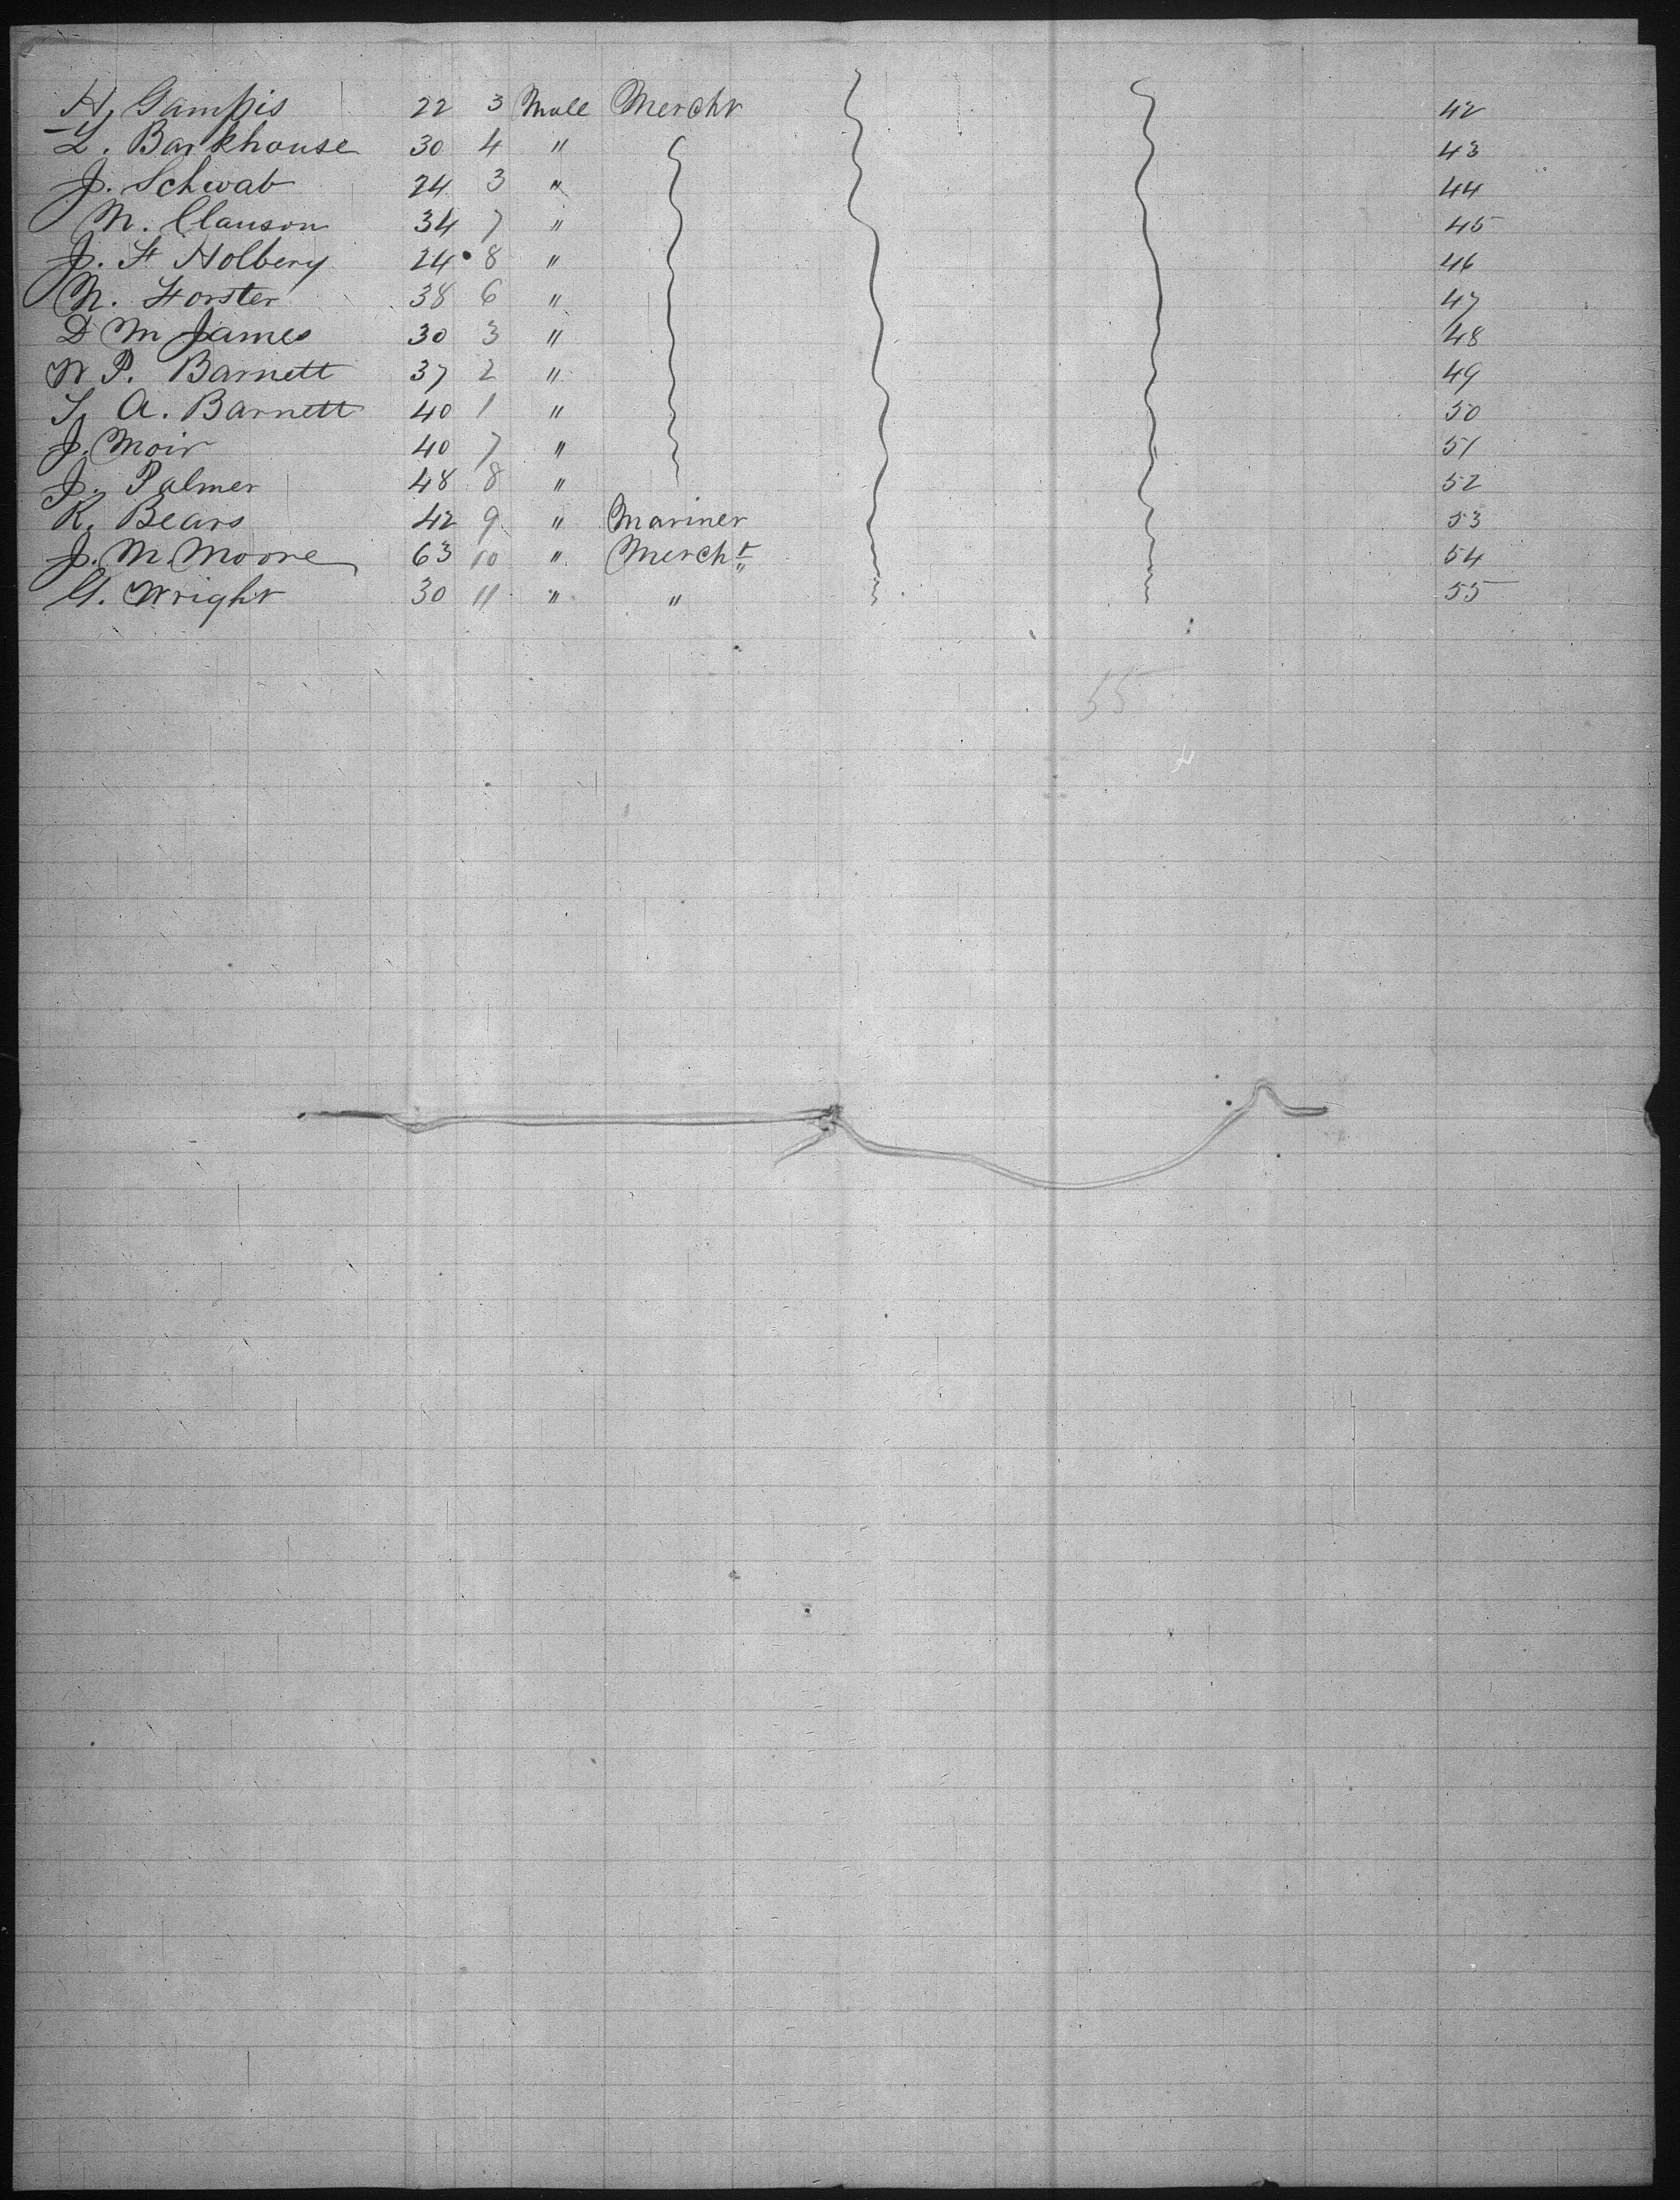 H. Gampis 22 3 Male Mercht 42
L. Barkhouse 30 4 " 43
J. Schwab 24 3 " 44
M. Clauson 34 7 " 45
J. F Holbery 24 8 " 46
M. Forster 38 6 " 47
D M James 30 3 " 48
W P. Barnett 37 2 " 49
S. A. Barnett 40 1 " 50
J. Moir 40 7 " 51
J. Palmer 48 8 " 52
R. Bears 42 9 " Mariner 53
J. M. Moore 63 10 " Mercht 54
G. Wright 30 11 " " 55
55